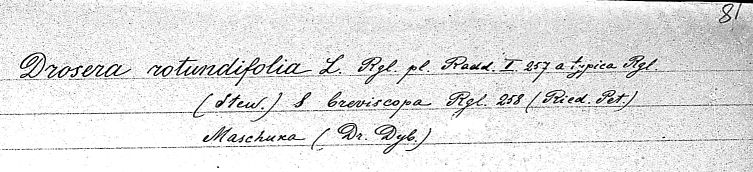 81
Drosera rotundifolia L. Rgl. pl. Radd. I. 257 α typica Rgl.
(Stew.) β breviscapa Rgl. 258 (Ried. Pet.)
Maschuka (Dr. Dyb.)